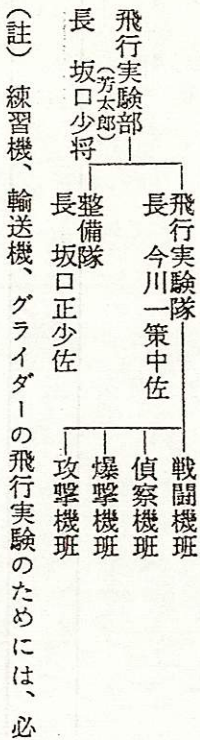 飛行実験部
(芳太郎)
長 坂口少将
飛行実験隊
長 今川一策中佐
整備隊
長 坂口正少佐
戦闘機班
偵察機班
爆撃機班
攻撃機班
(註) 練習機、輸送機、グライダーの飛行実験のためには、必